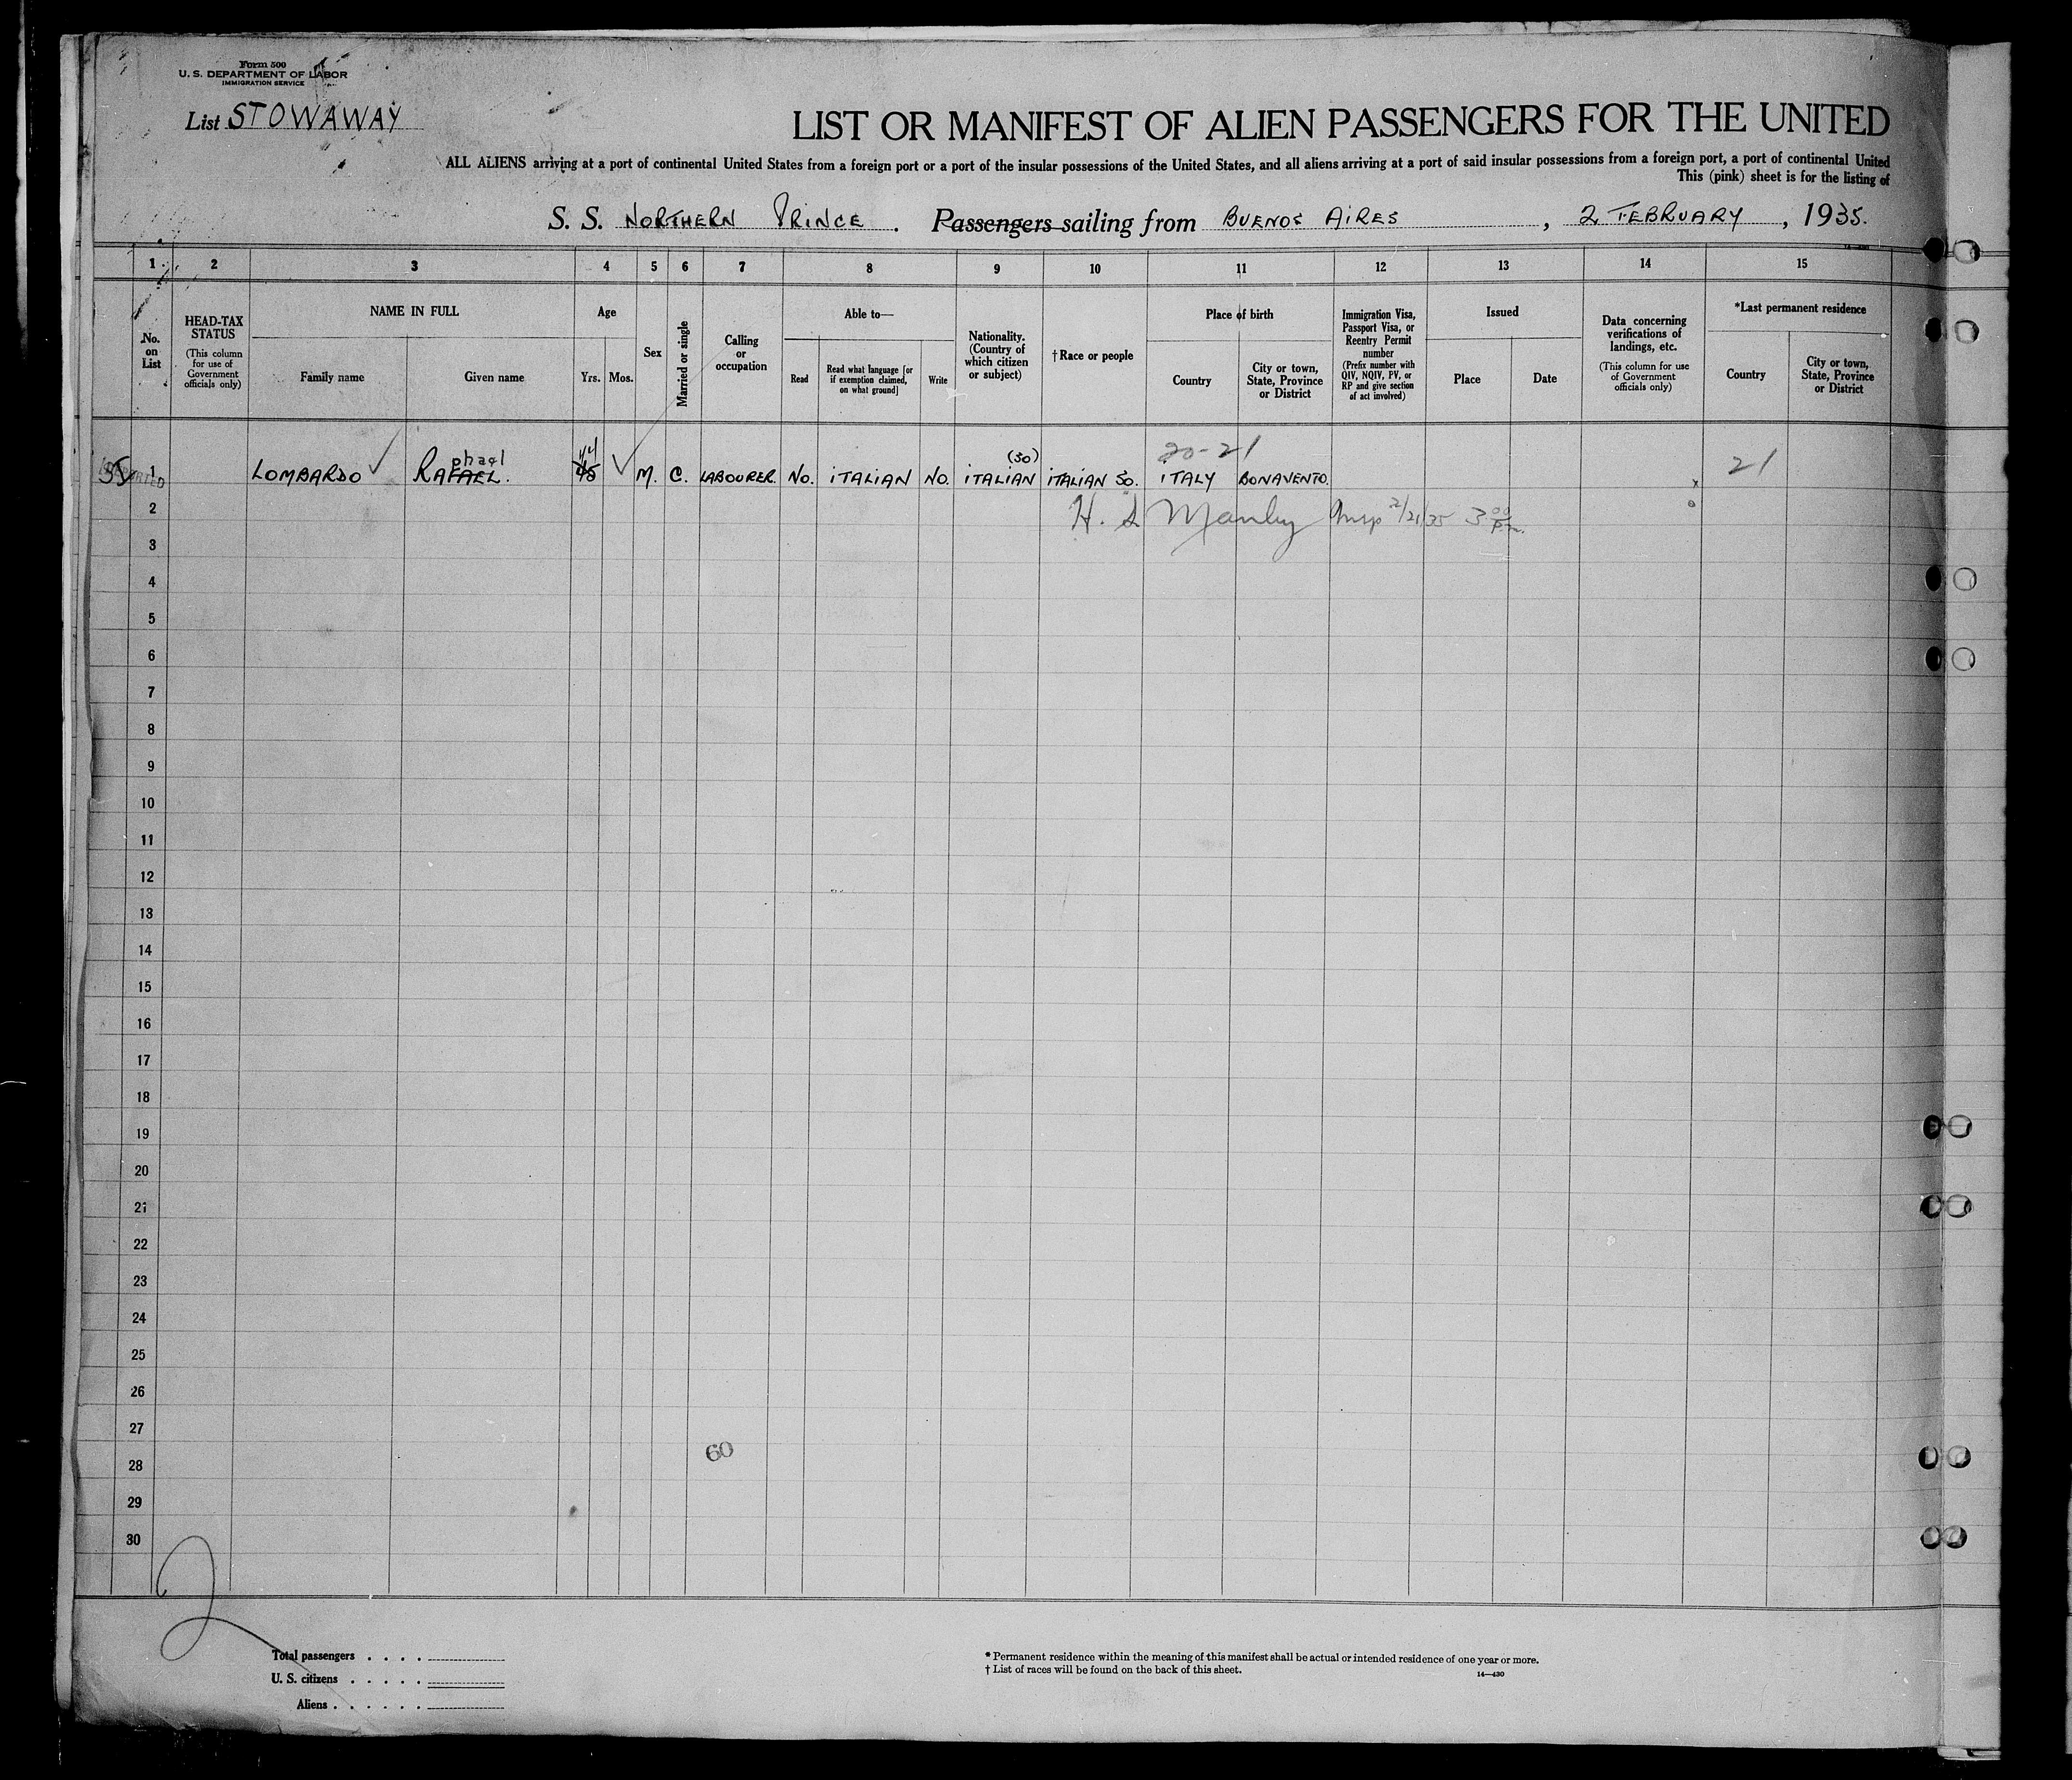 Form 500
U. S. DEPARTMENT OF LABOR
IMMIGRATION SERVICE
List STOWAWAY
LIST OR MANIFEST OF ALIEN PASSENGERS FOR THE UNITED
ALL ALIENS arriving at a port of continental United States from a foreign port or a port of the insular possessions of the United States, and all aliens arriving at a port of said insular possessions from a foreign port, a port of continental United
This (pink) sheet is for the listing of
S. S. NORTHERN PRINCE . Passengers sailing from BUENOS AIRES , 2 FEBRUARY , 1935.
1 2 3 4 5 6 7 8 9 10 11 12 13 14 15
No. on List
HEAD-TAX STATUS
(This column for use of Government officials only)
NAME IN FULL
Family name
Given name
Age
Yrs.
Mos.
Sex
Married or single
Calling or occupation
Able to—
Read
Read what language [or if exemption claimed, on what ground]
Write
Nationality. (Country of which citizen or subject)
†Race or people
Place of birth
Country
City or town, State, Province or District
Immigration Visa, Passport Visa, or Reentry Permit number
(Prefix number with QIV, NQIV, PV, or RP and give section of act involved)
Issued
Place
Date
Data concerning verifications of landings, etc.
(This column for use of Government officials only)
*Last permanent residence
Country
City or town, State, Province or District
phael 44 (So) 20-21
1 LOMBARDO RAFAEL. 45 M. C. LABOURER. No. ITALIAN No. ITALIAN ITALIAN So. ITALY BONAVENTO. 21
2 H. S Manley Insp 2/21/35 3 00 p.m.
3
4
5
6
7
8
9
10
11
12
13
14
15
16
17
18
19
20
21
22
23
24
25
26
27
60
28
29
30
2
Total passengers . . . .
U. S. citizens . . . . .
Aliens . . . . . .
* Permanent residence within the meaning of this manifest shall be actual or intended residence of one year or more.
† List of races will be found on the back of this sheet.
14—430